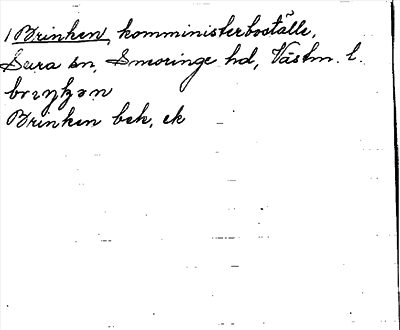 1 Brinken, komministerboställe,
Sura sn, Snevringe hd, Västm. l.
brıŋkən
Brinken bek, ek